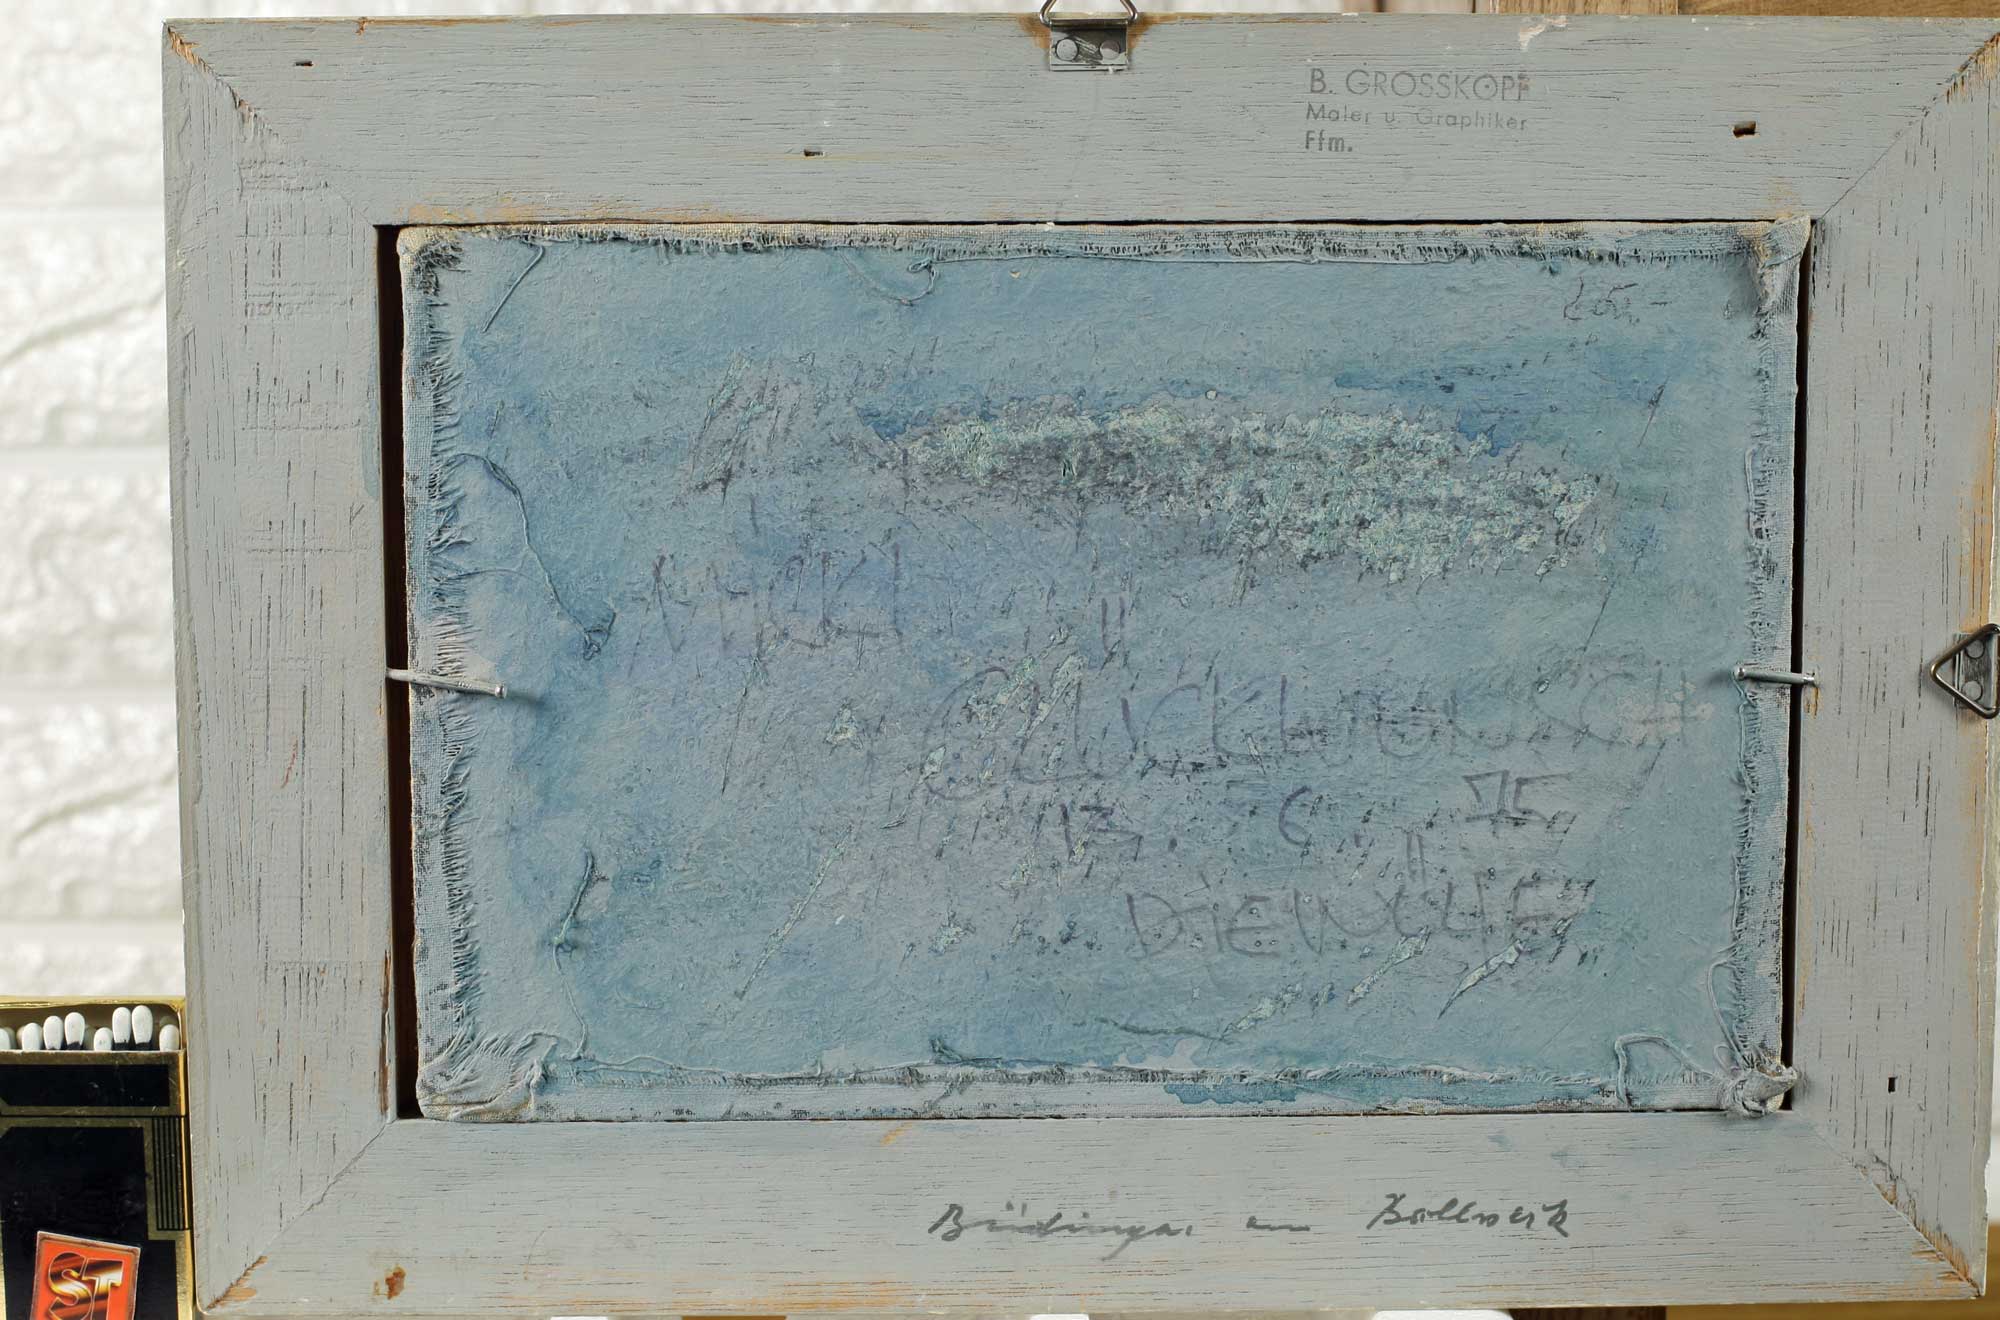 B. GROSSKOPF
Maler u. Graphiker
Ffm.
MICKI
GLÜCKWUNSCH
13. 6. 75
Büdingen am Bollwerk
ST